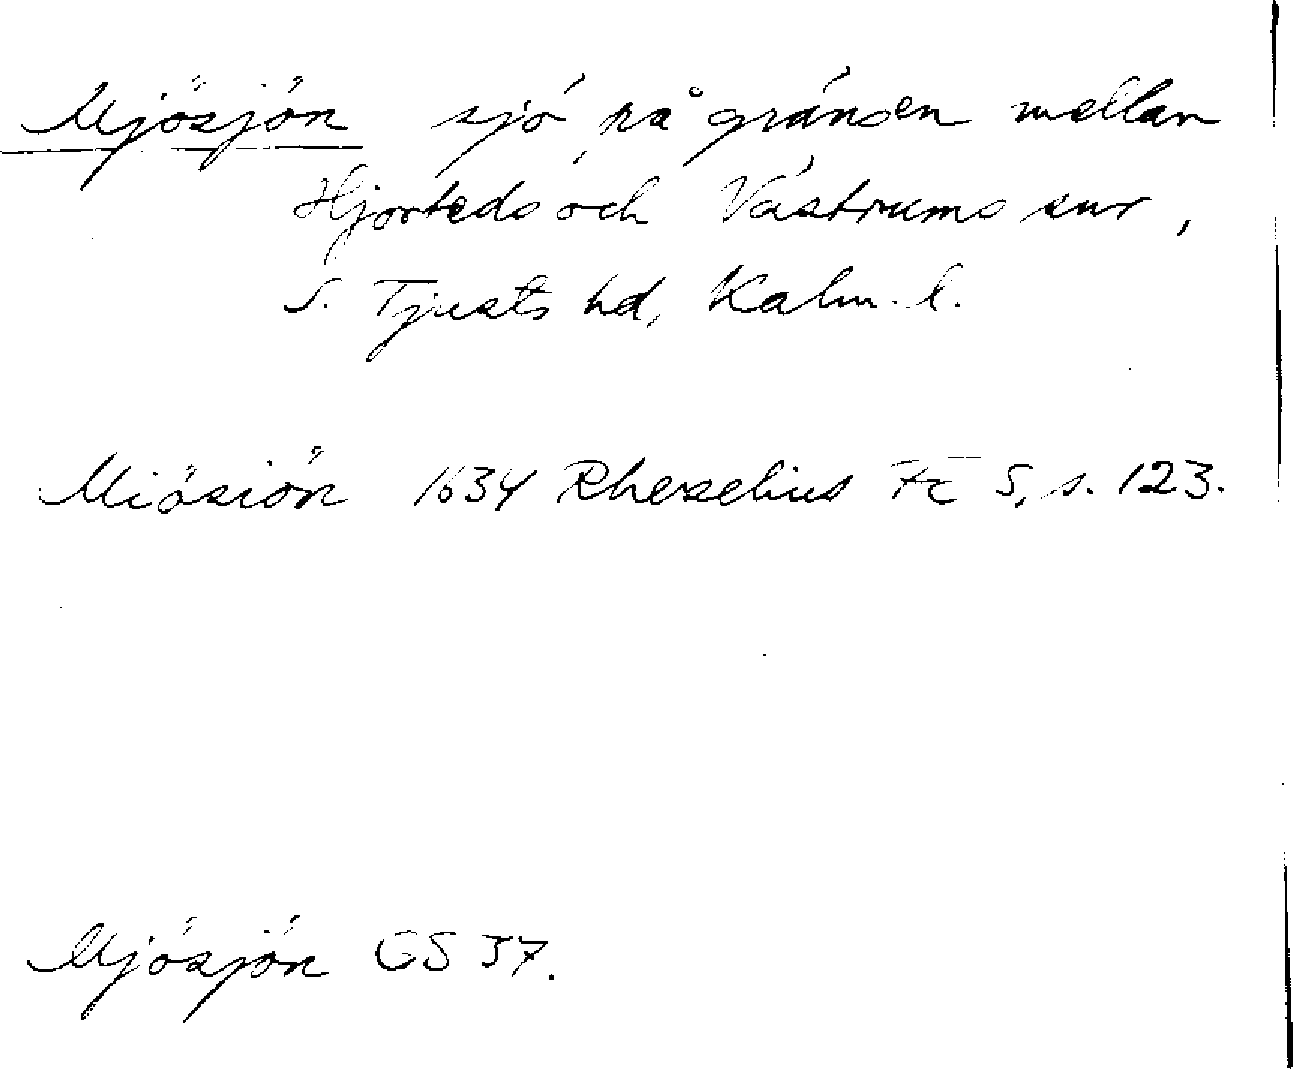 Mjösjön sjö på gränsen mellan
Hjorteds och Västrums snr,
S. Tjusts hd, Kalm. l.
Miösiön 1634 Rhezelius Fc 5, s. 123.
Mjösjön GS 37.